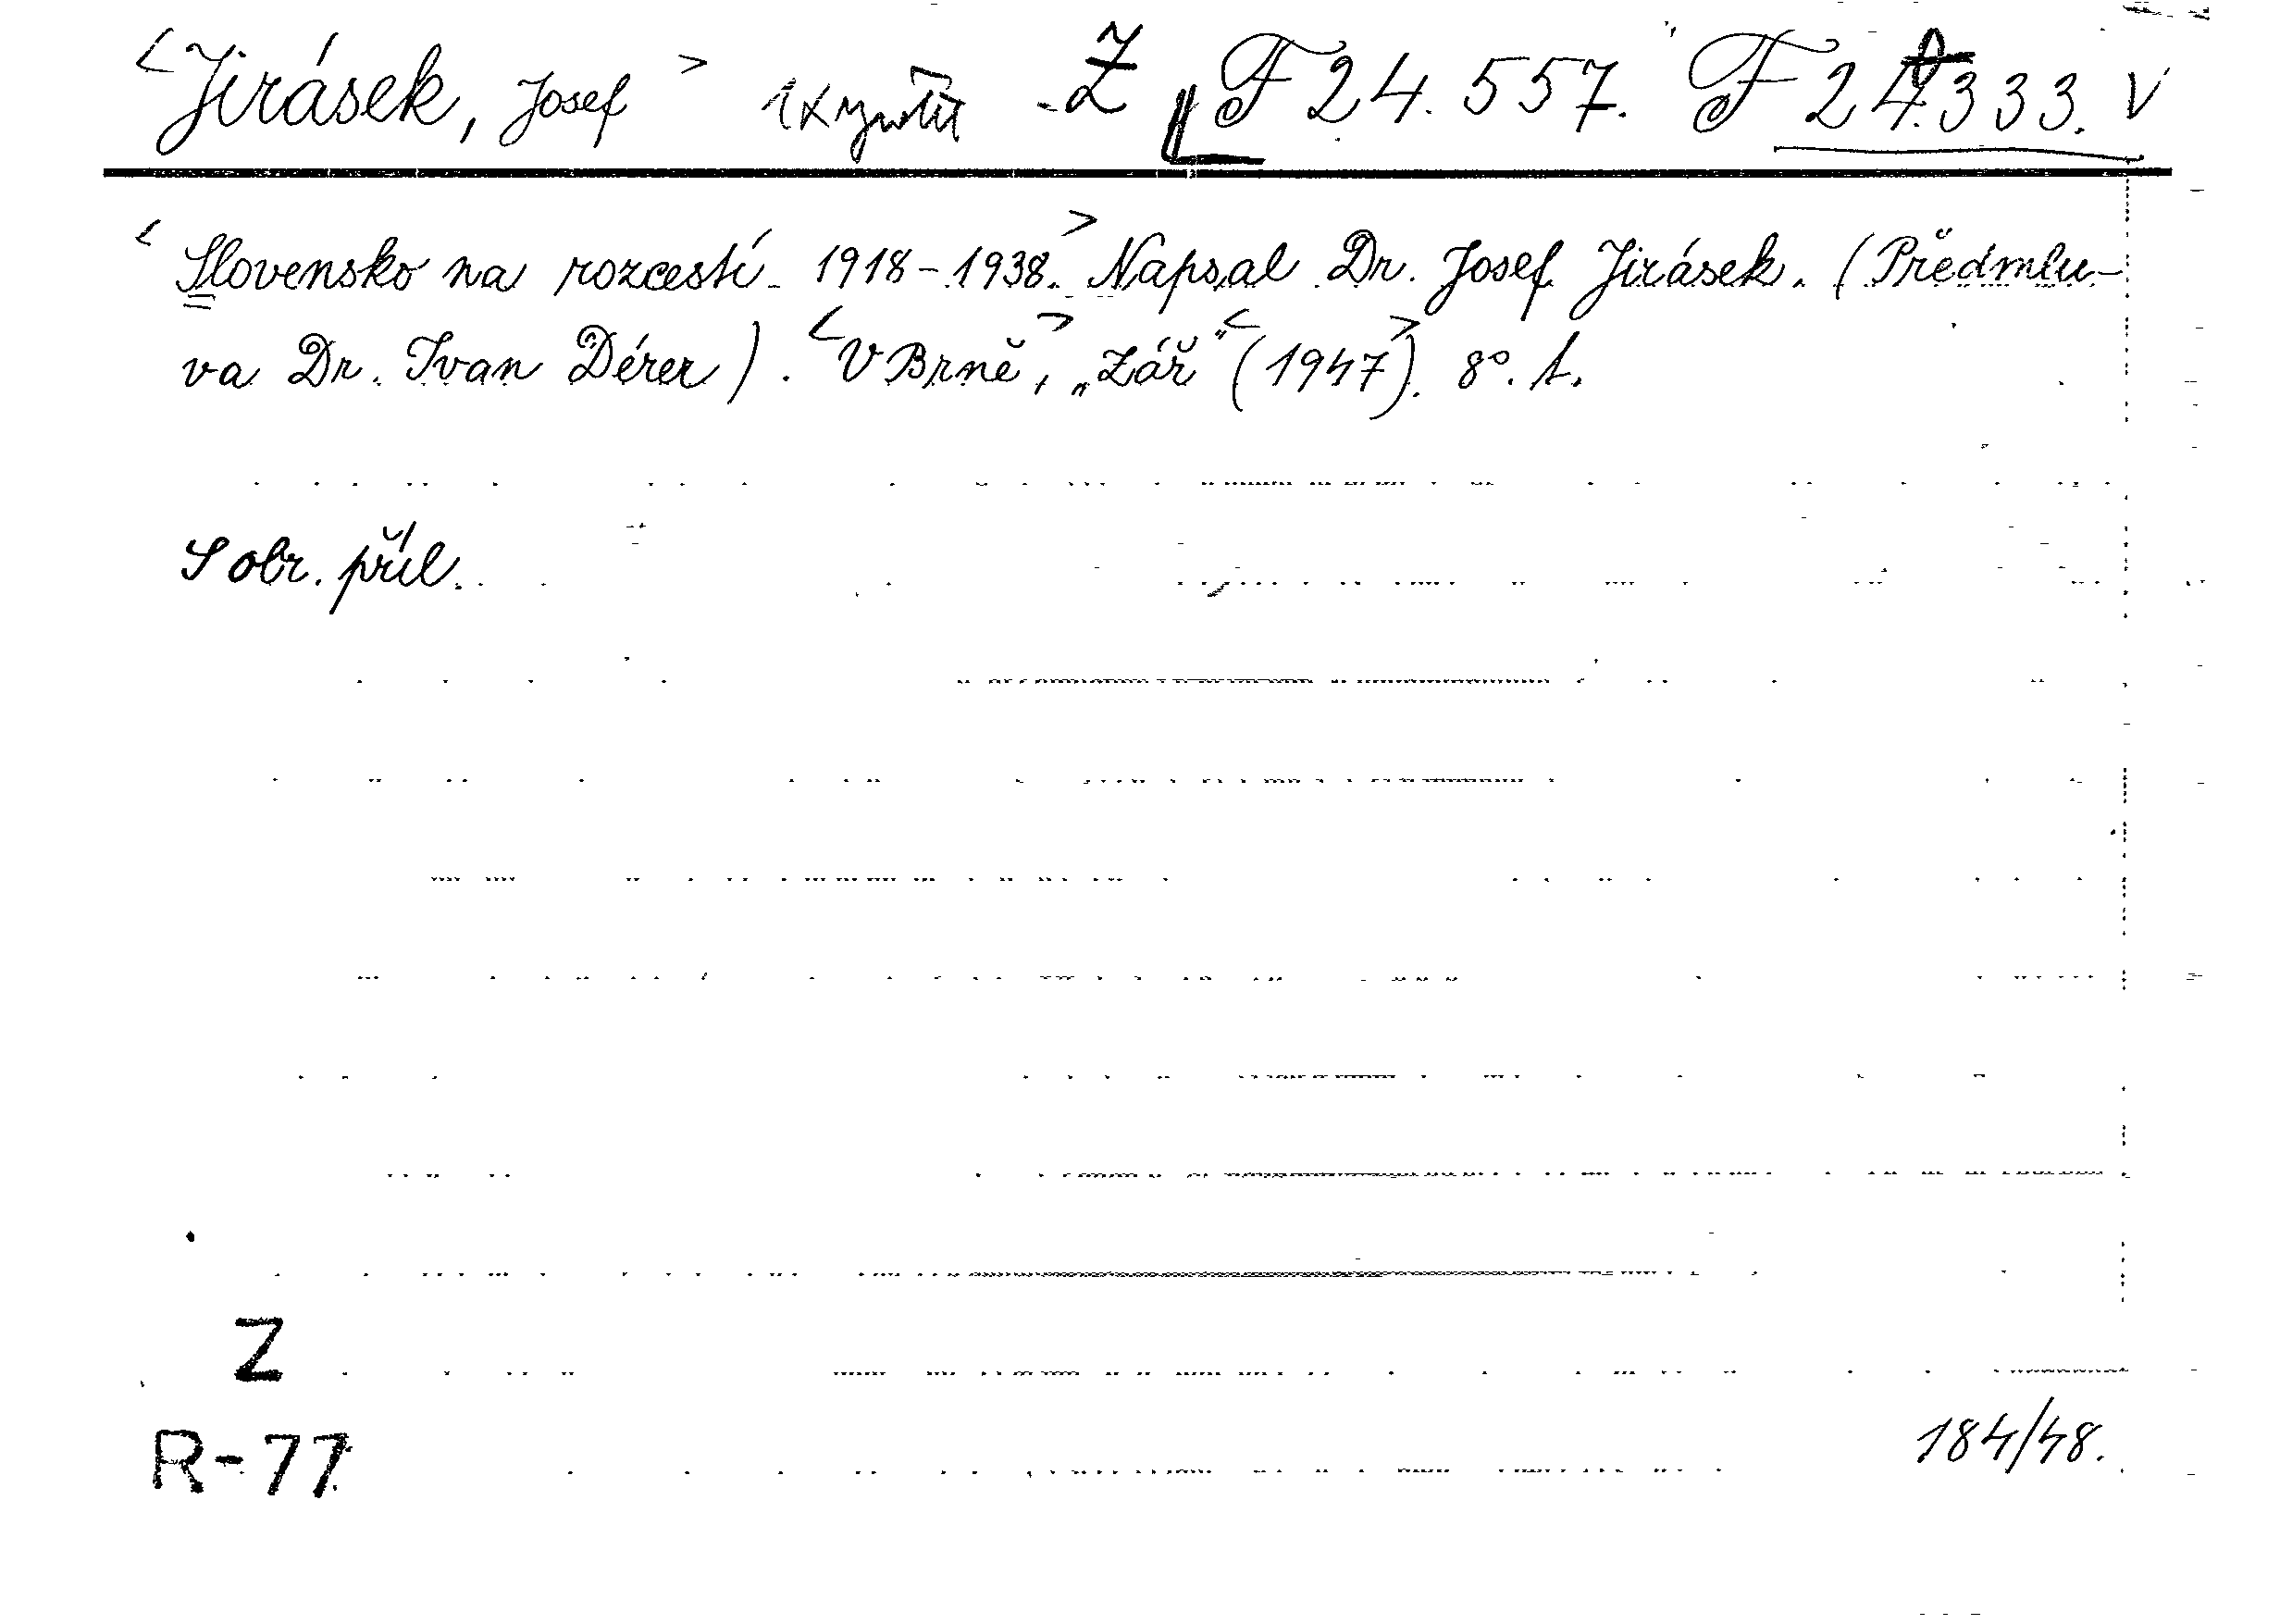 <Jirásek, Josef> 1x Z F 24.557. F 24.333. V
<Slovensko na rozcestí 1918-1938.> Napsal Dr. Josef Jirásek. (Předmlu-
va Dr. Ivan Dérer). <V Brně,> „Zář“ <(1947)>. 8°.
S obr. příl.
Z
R-77
184/48.